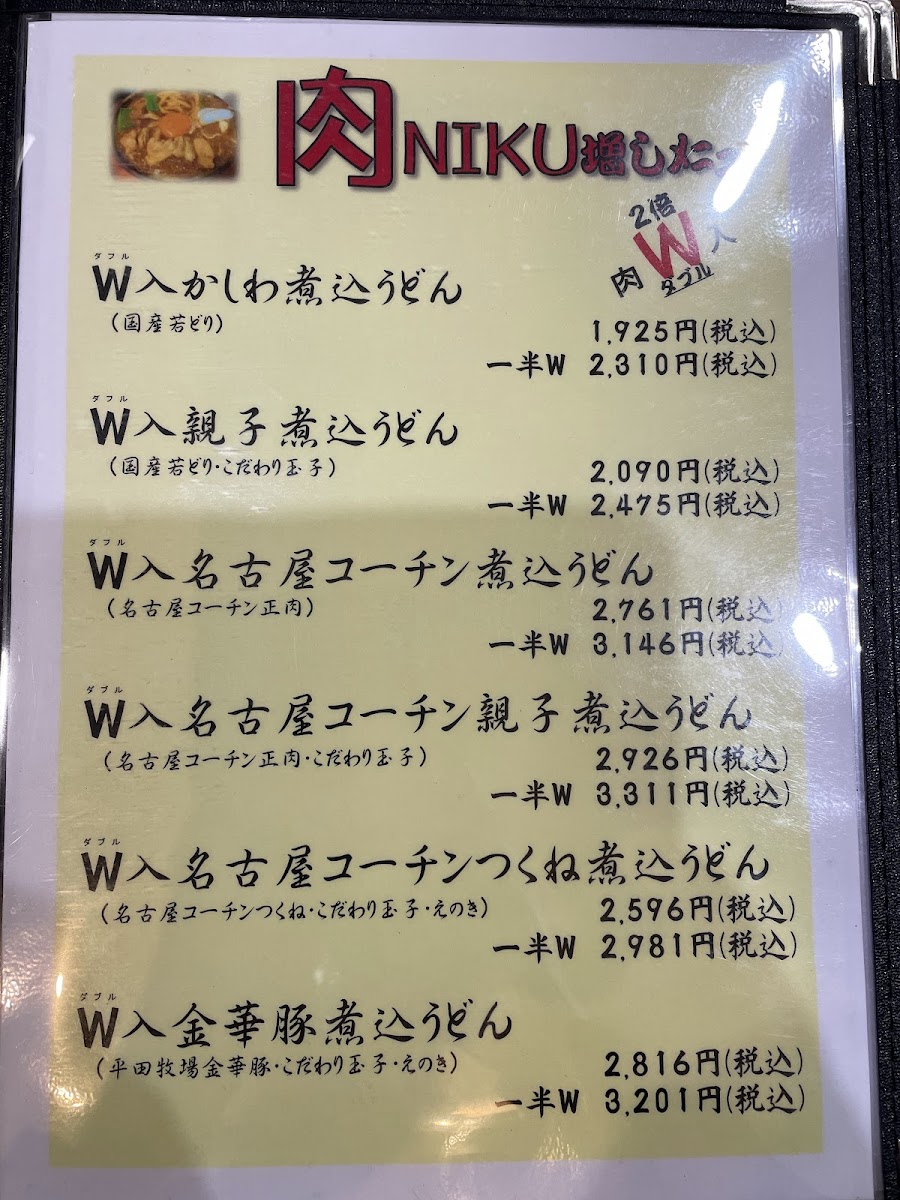 肉NIKU増した
2倍
肉W入
ダブル
ダブル
W入かしわ煮込うどん
(国産若どり)
1,925円(税込)
一半W 2,310円(税込)
ダブル
W入親子煮込うどん
(国産若どり・こだわり玉子)
2,090円(税込)
一半W 2,475円(税込)
ダブル
W入名古屋コーチン煮込うどん
(名古屋コーチン正肉)
2,761円(税込)
一半W 3,146円(税込)
ダブル
W入名古屋コーチン親子煮込うどん
(名古屋コーチン正肉・こだわり玉子)
2,926円(税込)
一半W 3,311円(税込)
ダブル
W入名古屋コーチンつくね煮込うどん
(名古屋コーチンつくね・こだわり玉子・えのき)
2,596円(税込)
一半W 2,981円(税込)
ダブル
W入金華豚煮込うどん
(平田牧場金華豚・こだわり玉子・えのき)
2,816円(税込)
一半W 3,201円(税込)